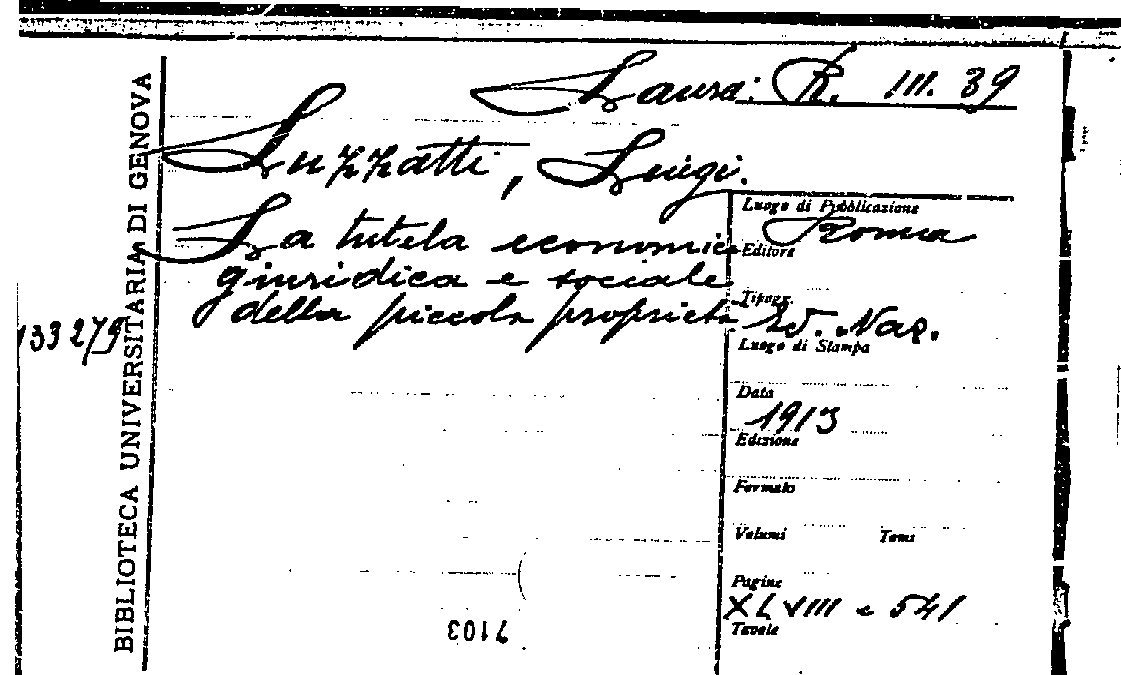 BIBLIOTECA UNIVERSITARIA DI GENOVA
133279
Laura: R. III. 39
Luzzatti, Luigi.
La tutela economica
giuridica e sociale
della piccola proprietà
Luogo di Pubblicazione
Roma
Editore
Tipogr.
Ed. Naz.
Luogo di Stampa
Data
1913
Edizione
Formato
Volumi Tomi
Pagine
XLVIII e 541
Tavole
7103